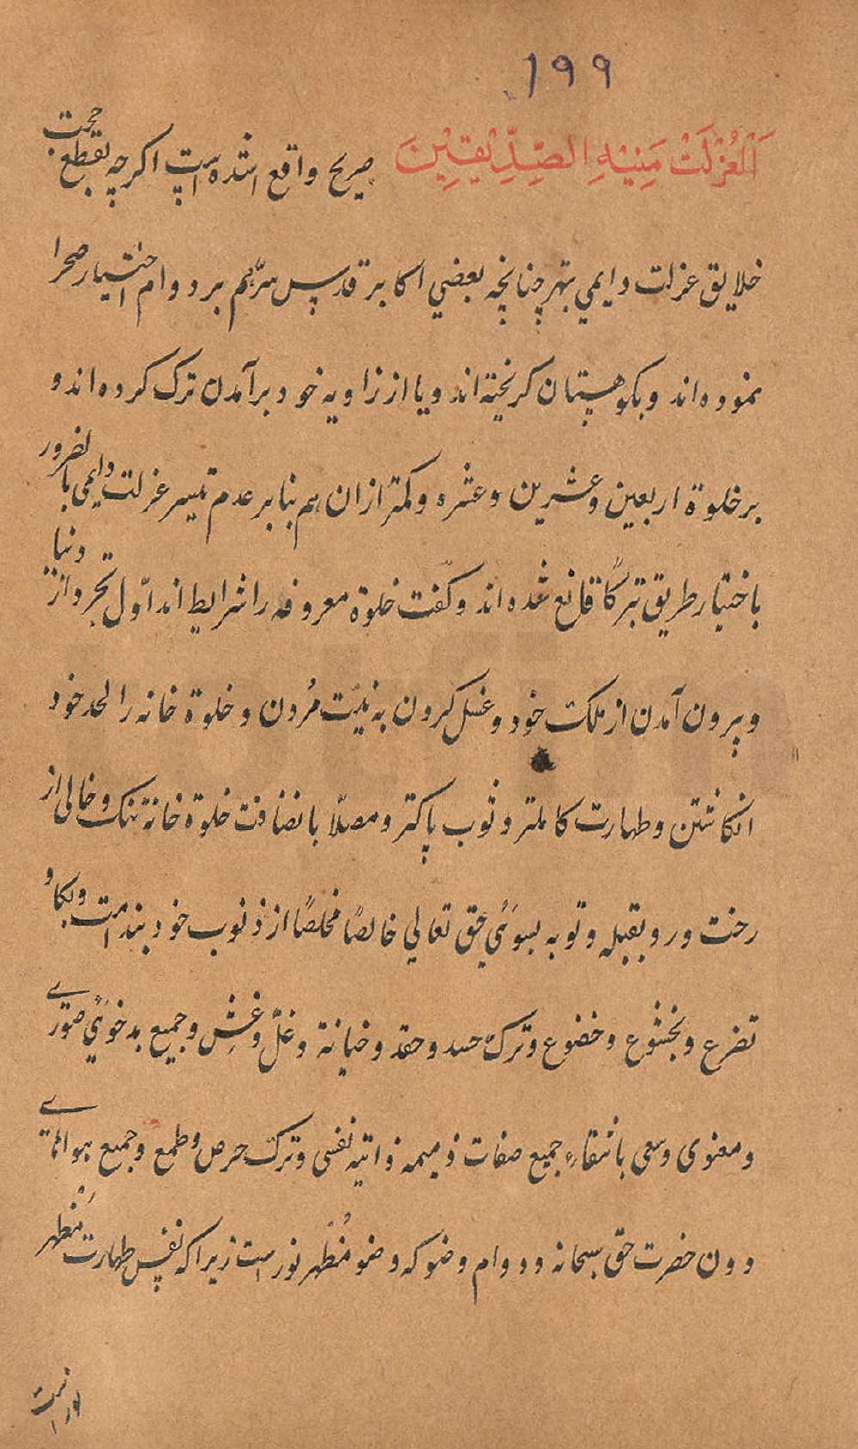 ۱۹۹
اَلْعُزْلَتْ مَنِیْهِ الصِّدِّیْقِیْنَ صریح واقع شده است اکرچه بقطع حجت
خلایق عزلت دایمي بهتر چنانچه بعضي اکابر قدس سرّهم بر دوام اختیار صحرا
نموده اند و بکوهستان کریخته اند و یا از زاویه خود برآمدن ترک کرده اند و
بر خلوة اربعین و عشرین و عشره و کمتر ازان هم بنا بر عدم تیسر عزلت دایمی بالضرور
باختیار طریق تبرکًا قانع شده اند و کفت خلوة معروفه را شرایط اند اوّل تجرد از دنیا
و بیرون آمدن از ملک خود و غسل کردن به نیّت مُردن و خلوة خانه را لحد خود
انکاشتن و طهارت کاملتر و ثوب پاکتر و مصلّا بانضافت خلوة خانه تنک و خالی از
رخت و رو بقبله و توبه بسوئي حق تعالي خالصًا مخلصًا از ذنوب خود بندامت و بکا و
تضرع و بخشوع و خضوع و ترک حسد و حقد و خیانة و غلّ و غش و جمیع بدخوئي صوری
و معنوی و سعی بانتفاء جمیع صفات ذمیمه ذاتیه نفسی و ترک حرص و طمع و جمیع هوائے
دون حضرت حق سبحانه و دوام وضو که وضو مُظهر نور است زیرا که نفس طهارت مُظهر
نور است